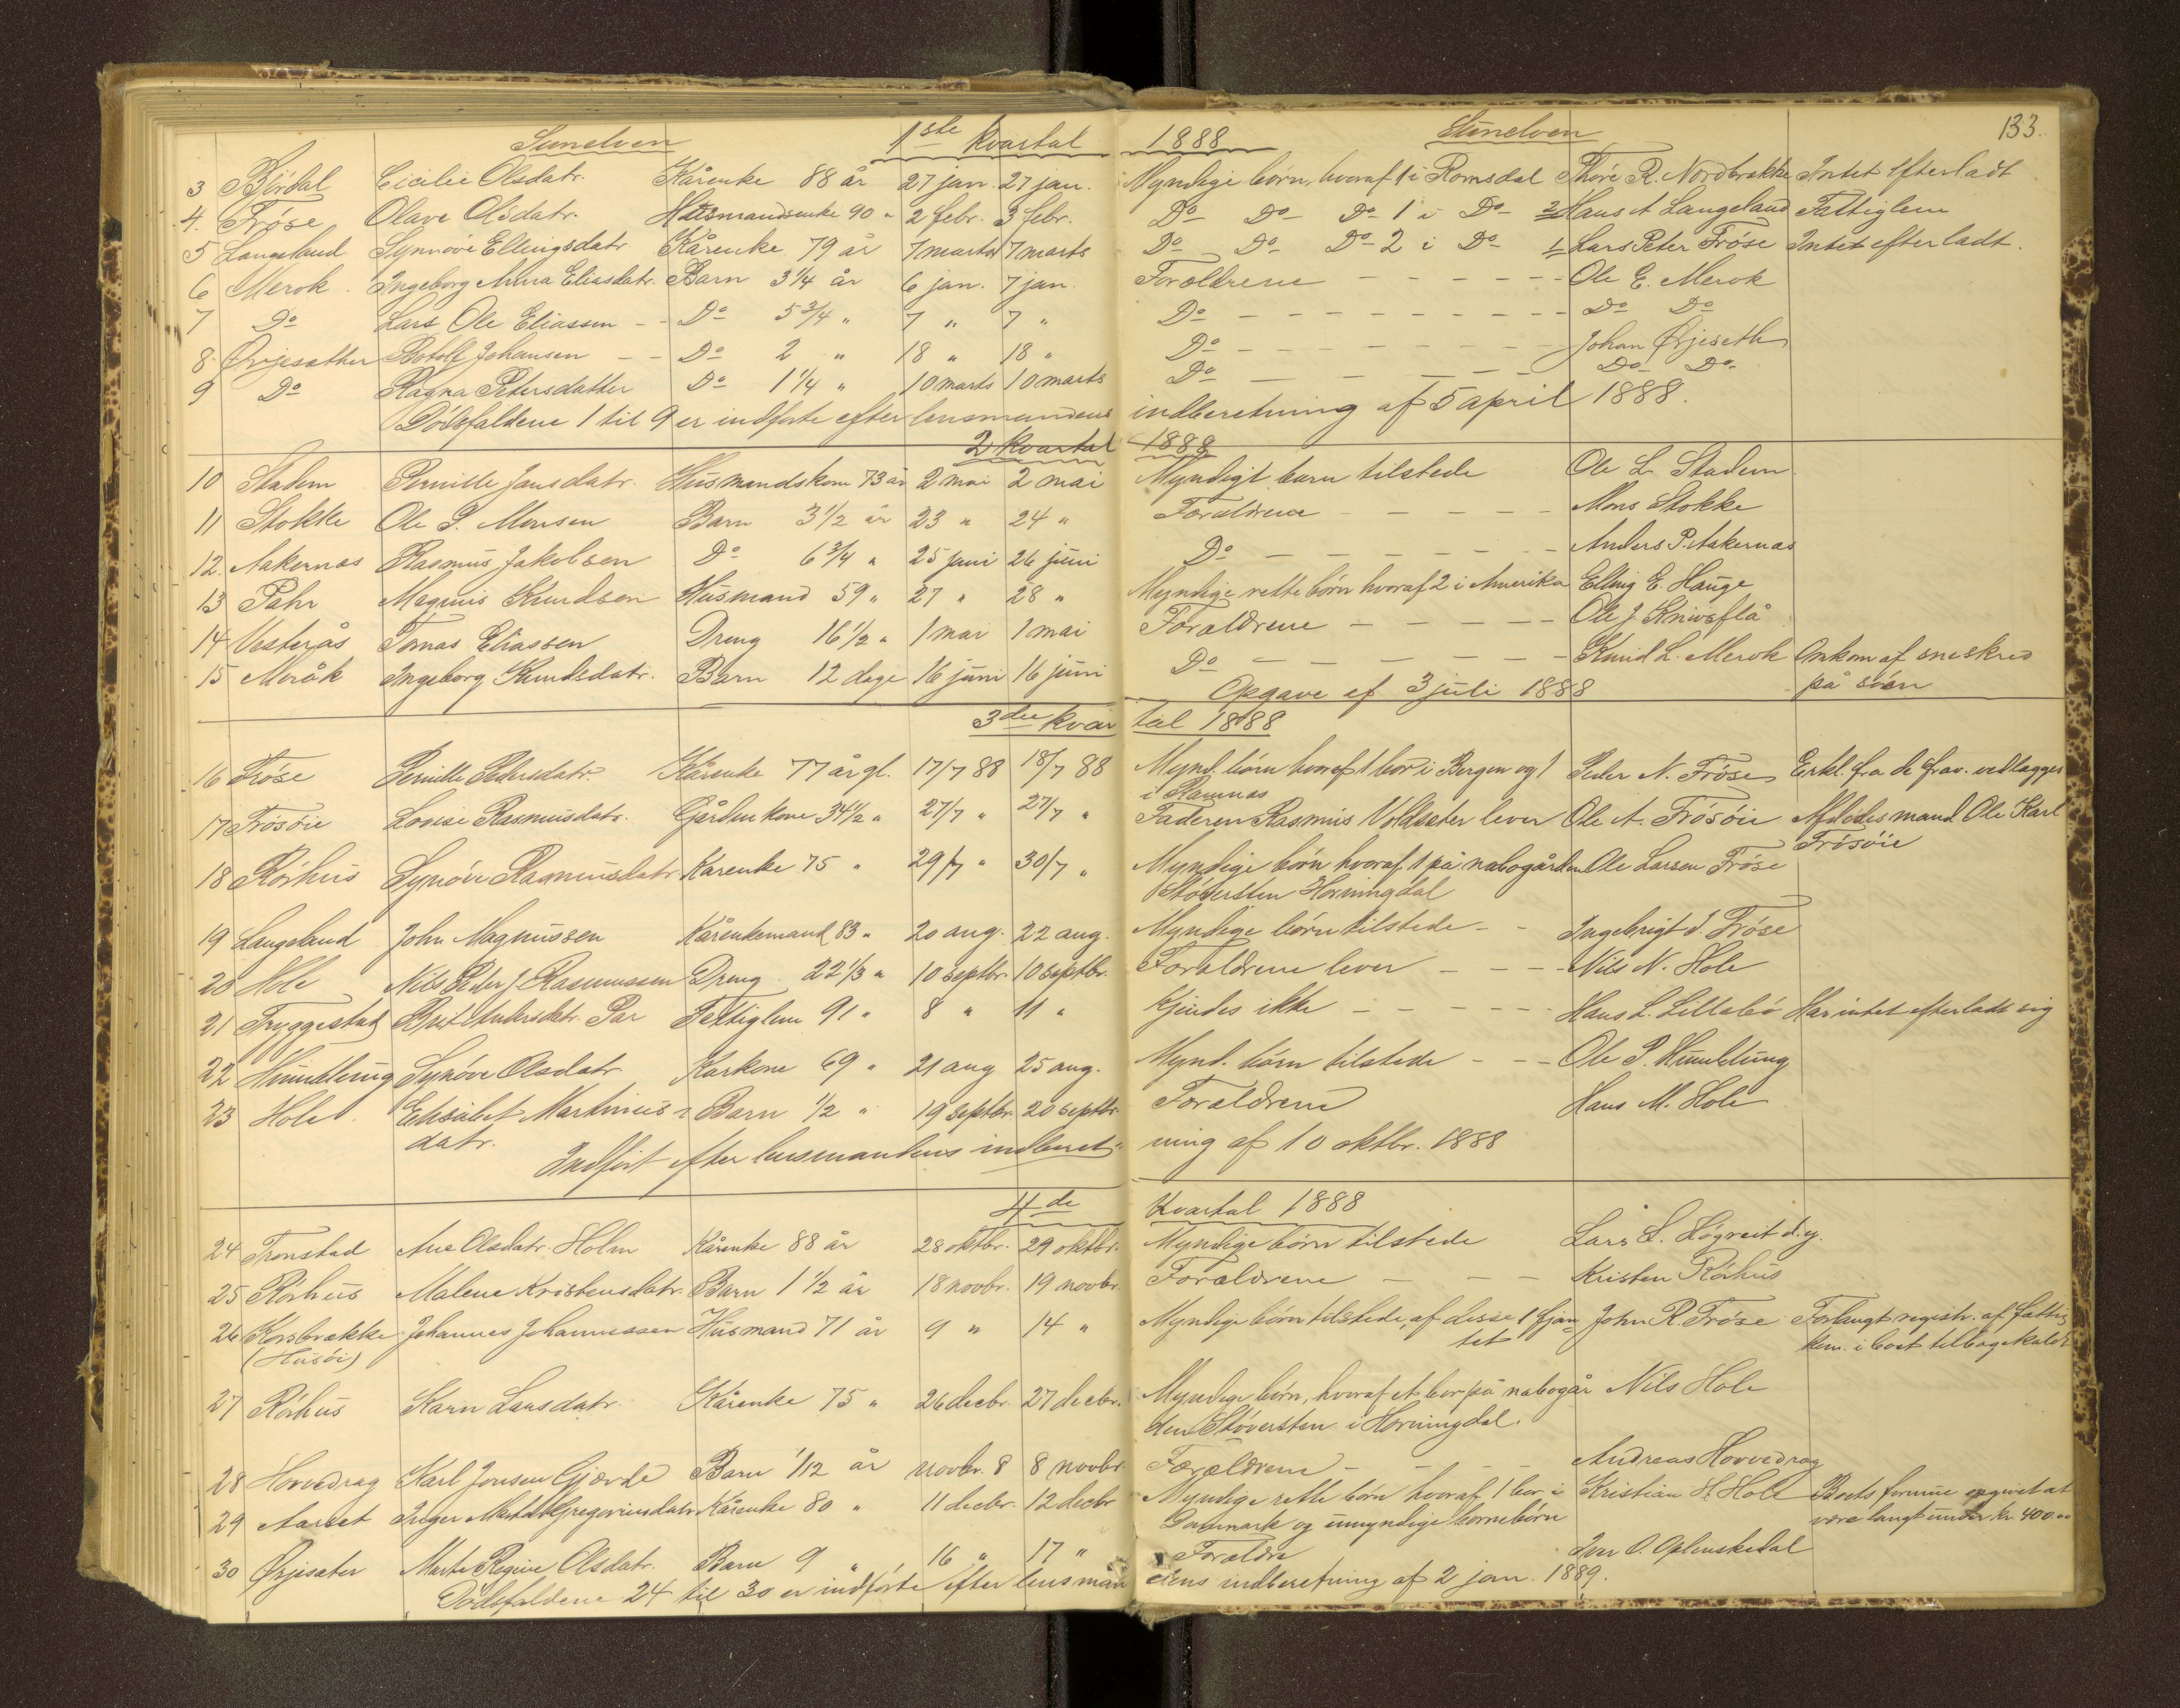 Sunelven 1ste kvartal 1888 Sunelven 133.
3 Bjørdal Cicilie Olsdatr. Kårenke 88 år 27 jan. 27 jan. Myndige børn, hvoraf 1 i Romsdal Thore R. Nordbrække Intet efterladt
4. Frøse Olave Olsdatr. Husmandsenke 90 " 2 febr. 3 febr. Do Do Do 1 i Do Hans A Langeland Fattiglem
5 Langeland Synnøve Ellingsdatr Kårenke 79 år 7 marts 7 marts Do Do Do 2 i Do Lars Peter Frøse Intet efterladt.
6 Merok Ingeborg Anna Eliasdatr. Barn 3 1/4 år 6 jan. 7 jan. Forældrene - - - - - Ole E. Merok
7 Do Lars Ole Eliassen - - Do 5 3/4 " 7 " 7 " Do - - - - - - - - Do Do
8 Ørjesæther Botolf Johansen - - Do 2 " 18 " 18 " Do - - - - - - - Johan Ørjeseth
9 Do Ragna Petersdatter Do 1 1/4 " 10 marts 10 marts Do - - - - - Do Do
Dødsfaldene 1 til 9 er indførte efter lensmandens indberetning af 5 april 1888.
2 kvartal 1888
10 Stadem Pernille Jansdatr. Husmandskone 73 år 2 mai 2 mai Myndigt barn tilstede Ole L. Stadem
11 Stokke Ole P. Monsen Barn 3 1/2 år 23 " 24 " Forældrene - - - - - Mons Stokke
12. Aakernæs Rasmus Jakobsen Do 6 3/4 " 25 juni 26 juni Do - - - - - - Anders P. Aakernæs
13 Pahr Magnus Knudsen Husmand 59 " 27 " 28 " Myndige rette børn hvoraf 2 i Amerika Elling E. Hauge
14 Vesterås Tomas Eliassen Dreng 16 1/2 " 1 mai 1 mai Forældrene - - - - - Ole J. Knivsflå
15 Meråk Ingeborg Knudsdatr. Barn 12 dage 16 juni 16 juni Do - - - - - - Knud L. Merok Omkom af sneskred
Opgave af 3 juli 1888 på søen
3die kvartal 1888
16 Frøse Pernille Pedersdatr. Kårenke 77 år gl. 17/7 88 18/7 88 Mynd. børn hvoraf 1 bor i Bergen og 1 Peder N. Frøse Erkl. fra de frav. vedlægges
i Ramnæs
17 Frøsøie Lovise Rasmusdatr. Gårdenkone 34 1/2 " 27/7 " 27/7 " Faderen Rasmus Voldsæter lever Ole A. Frøsøie Afdødes mand Ole Karl
Frøsøie
18 Rørhus Synøve Rasmusdatr Kårenke 75 " 29/7 " 30/7 " Myndige børn hvoraf 1 på nabogården Ole Larsen Frøse
Støversten Horningdal
19 Langeland John Magnussen Kårenkemand 83 " 20 aug. 22 aug. Myndige børn tilstede - - Ingebrigt J. Frøse
20 Hole Nils Peter J Rasmussen Dreng 22 1/3 " 10 septbr. 10 septbr. Forældrene lever - - - Nils N. Hole
21 Tryggestad Brit Andersdatr. Par Fattiglem 91 " 8 " 11 " Kjendes ikke - - - - - Hans L. Lillebø Har intet efterladt sig
22 Humblung Synøve Olsdatr Karkone 69 " 21 aug 25 aug. Mynd. børn tilstede - - - Ole P. Humblung
23 Hole Elisabet Martinus- Barn 1/2 " 19 septbr. 20 septbr. Forældrene Hans M. Hole
datr.
Indført efter lensmandens indberetning af 10 oktbr. 1888
4de Kvartal 1888
24 Tronstad Ane Olsdatr. Holm Kårenke 88 år 28 oktbr. 29 oktbr. Myndige børn tilstede Lars L. Løgreit d.y.
25 Rørhus Malene Kristensdatr. Barn 1 1/2 år 18 novbr. 19 novbr. Forældrene - - - Kristen Rørhus
26 Korsbrække Johannes Johannessen Husmand 71 år 9 " 14 " Myndige børn tilstede, af disse 1 fjan- John R. Frøse Forlangt registr. af fattig
(Husøi) tet kom. i boet tilbagekaldt
27 Rørhus Karn Larsdatr. Kårenke 75 " 26 decbr. 27 decbr. Myndige børn, hvoraf et bor på nabogår Nils Hole
den Støversten i Horningdal.
28 Hovvedrag Karl Jonsen Gjærde Barn 1/12 år novbr. 8 8 novbr. Forældrene - - - - Andreas Hovvedrag
29 Aarset Inger Gregoriusdatr Kårenke 80 " 11 decbr. 12 decbr Myndige rette børn hvoraf 1 bor i Kristian H Hole Boets formue opgivet at
Danmark og umyndige børnebørn være langt under kr. 400.00
30 Ørjesæter Marte Regine Olsdatr. Barn 9 " 16 " 17 " Forældre Iver O. Oplenskedal
Dødsfaldene 24 til 30 er indførte efter lensmandens indberetning af 2 jan. 1889.